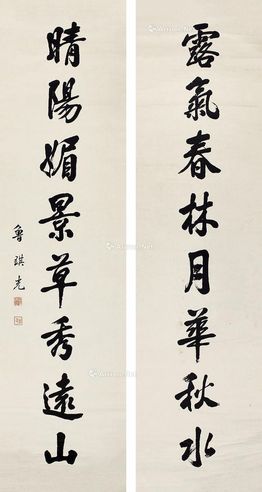 露氣春林月華秋水
晴陽媚景草秀遠山
魯琪光